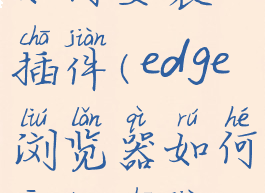 chā jiàn
插件(edge
liú lǎn qì rú hé
浏览器如何